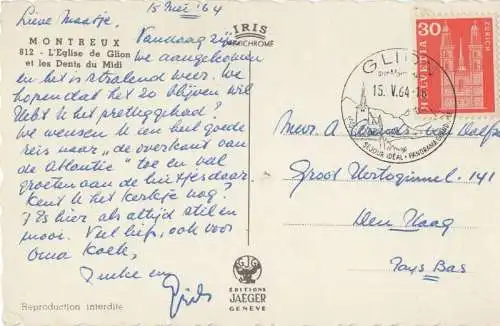 15 Mei '64
Lieve Maatje,
MONTREUX
812 - L'Eglise de Glion
et les Dents du Midi
IRIS
Vandaag zijn
we aangekomen
en het is stralend weer. We
hopen dat het zo blijven wil
Hebt U het prettig gehad?
We wensen U een hel goede
reis naar "de overkant van
de Atlantic" toe en veel
groeten aan de
Kent U het kerkje nog?
't Is hier als altijd stil en
mooi. Veel liefs, ook voor
Oma Koek,
en
GLION
15. V. 64 - 18
SEJOUR IDEAL - PANORAMA
30
HELVETIA
ZÜRICH
Mevr. A. van
Groot Hertoginnel. 141
Den Haag
Pays Bas
EDITIONS
JAEGER
GENEVE
Reproduction interdite